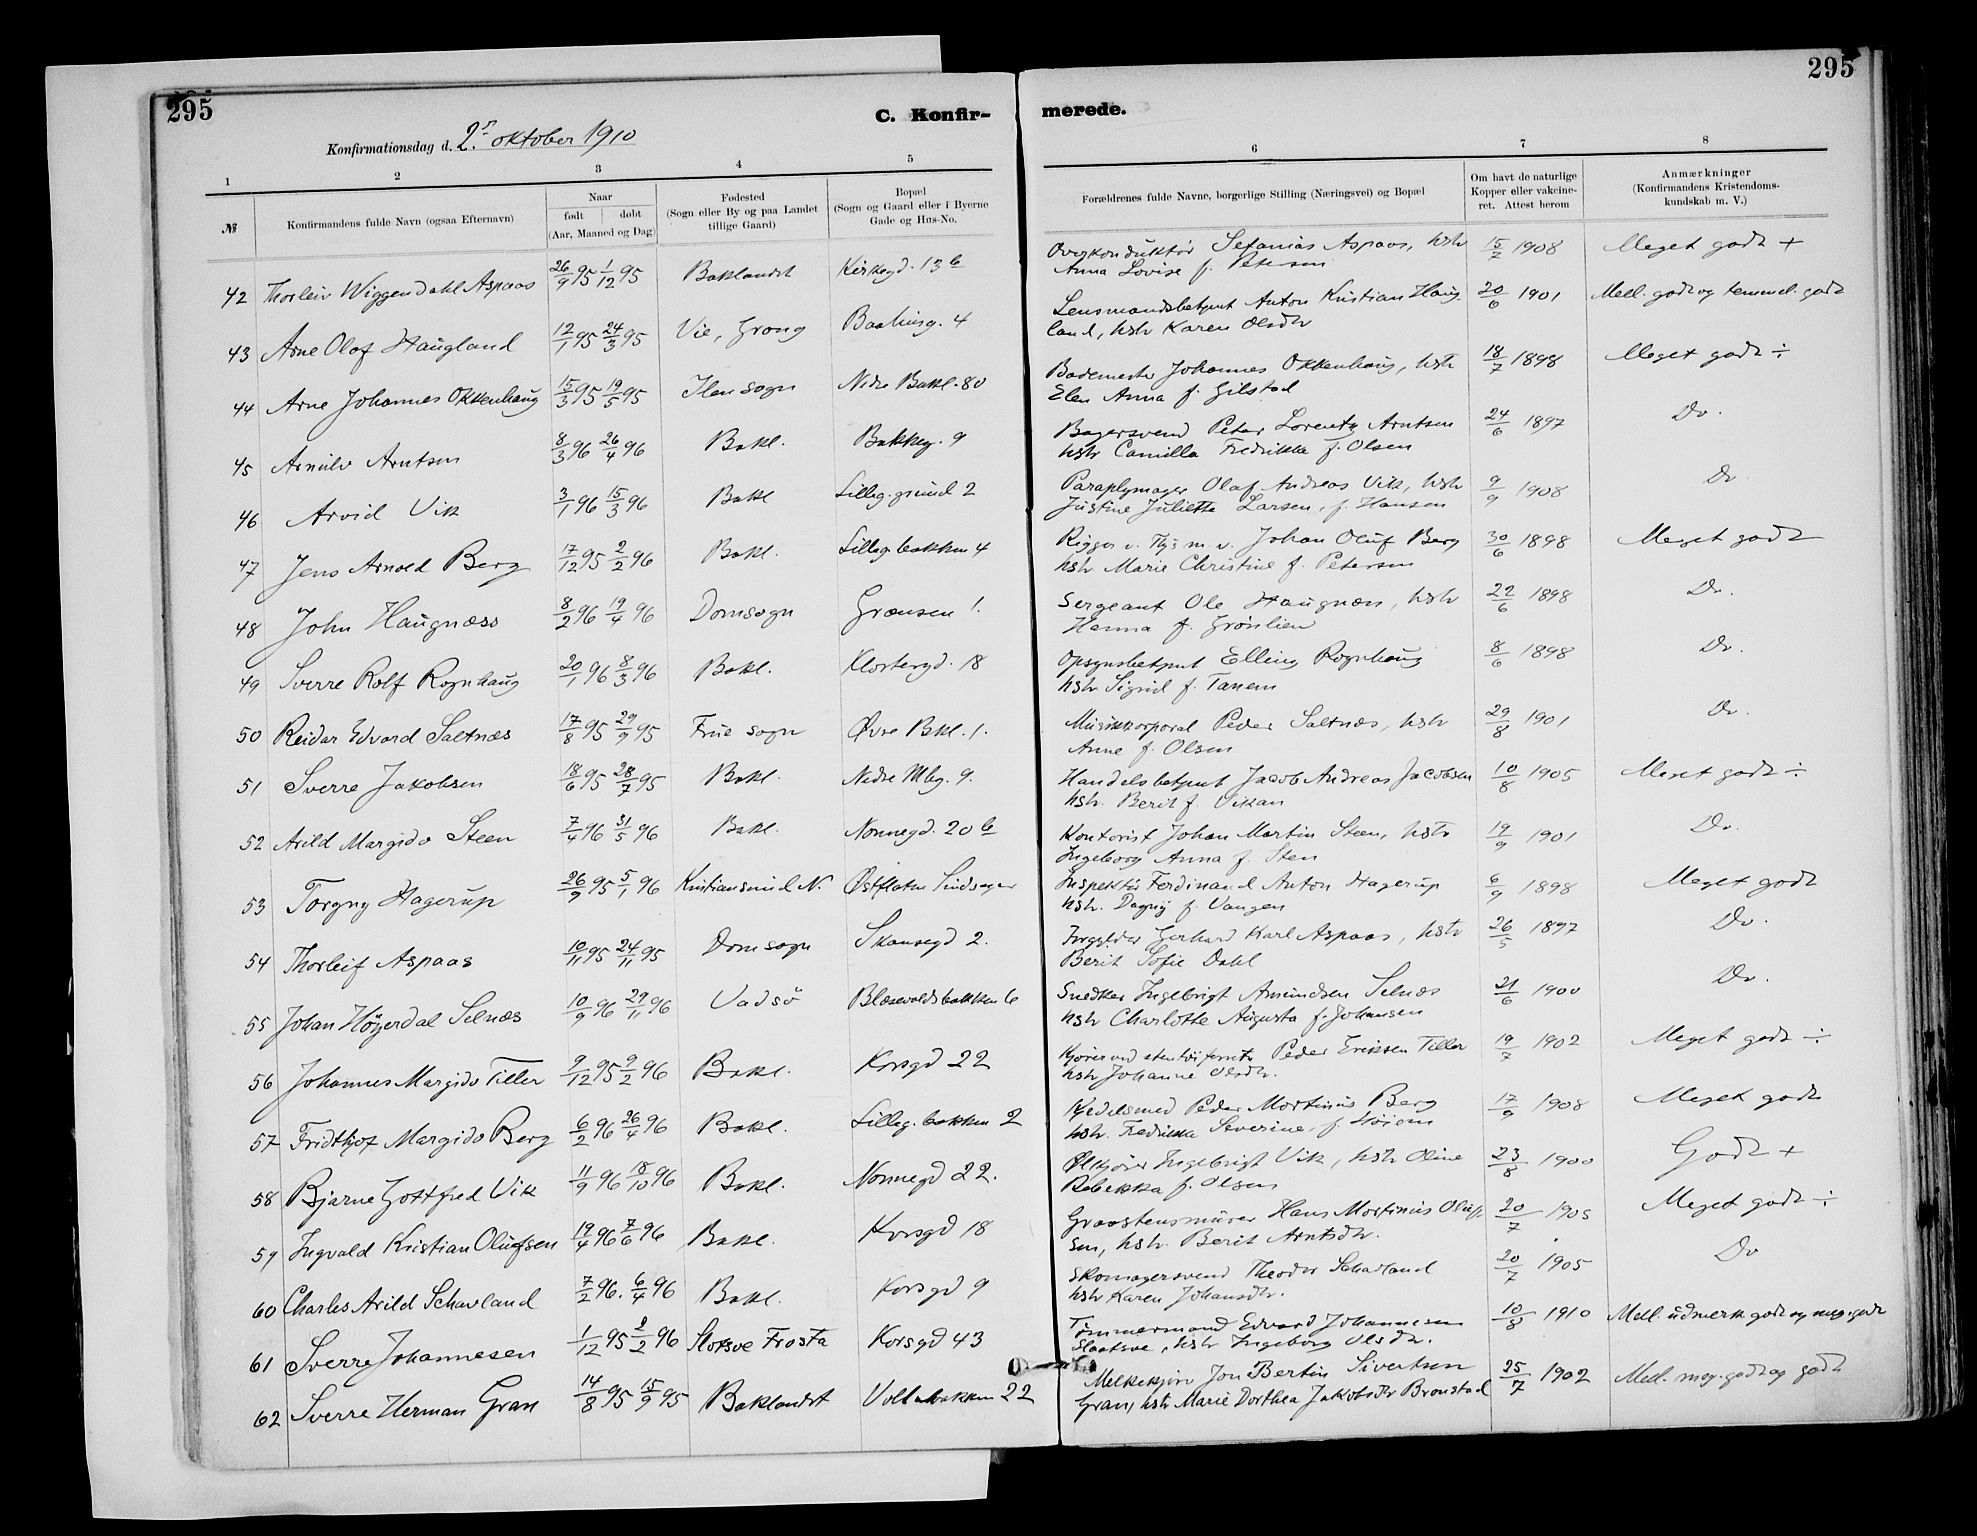 295
295
C. Konfir-
merede.
Konfirmationsdag d. 2. oktober 1910
1 2 3 4 5 6 7 8
№ Konfirmandens fulde Navn (ogsaa Efternavn) Naar født døbt (Aar, Maaned og Dag) Fødested (Sogn eller By og paa Landet tillige Gaard) Bopæl (Sogn og Gaard eller i Byerne Gade og Hus-No. Forældrenes fulde Navne, borgerlige Stilling (Næringsvei) og Bopæl Om havt de naturlige Kopper eller vakcineret. Attest herom Anmærkninger (Konfirmandens Kristendomskundskab m. V.)
42 Thorleiv Wiggen Dahl Aspaas 26/9 95 1/12 95 Baklandet Kirkegd. 13 b Overkonduktör Sefanias Aspaas, hstr 15/7 1908 Meget godt +
Anna Lovise f. Petersen
43 Arne Olaf Haugland 12/1 95 24/3 95 Vie, Grong 4 Lensmandsbetjent Anton Kristian Haug 20/6 1901 Mell. godt og temmel. godt
land, hstr Karen Olsdtr
44 Arne Johannes Okkenhaug 15/3 95 19/5 95 Ilen sogn Nedre Bakl. 80 Bademester Johannes Okkenhaug, hstr 18/7 1898 Meget godt ÷
Elen Anna f. Gilstad
45 Arnulv Arntsen 8/3 96 26/4 96 Bakl. Bakkeg. 9 Bagersvend Peter Lorentz Arntsen 24/6 1897 Do.
hstr Camilla Fredrikke f. Olsen
46 Arvid Vik 3/1 96 15/3 96 Bakl Lilleg. grund 2 Paraplymager Olaf Andreas Vik, hstr 9/9 1908 Do
Justine Juliette Larsen, f. Hansen
47 Jens Arnold Berg 17/12 95 2/2 96 Bakl. Lilleg. bakken 4 Rigger v. Johan Oluf Berg 30/6 1898 Meget godt
hstr Marie Christine f. Petersen
48 John Haugnæss 8/2 96 19/4 96 Domsogn Grænsen 1. Sergeant Ole Haugnæs, hstr 22/6 1898 Do.
Hanna f. Grönlien
49 Sverre Rolf Rognhaug 20/1 96 8/3 96 Bakl. Klostergd. 18 Opsynsbetjent Elling Rognhaug 8/6 1898 Do.
hstr Sigrid f. Tanem
50 Reidar Edvard Saltnæs 17/8 95 29/9 95 Frue sogn Øvre Bakl. 1. Musikkorporal Peder Saltnæs, hstr 29/8 1901 Do.
Anne f. Olsen
51 Sverre Jakobsen 18/6 95 28/7 95 Bakl. Nedre Mbg. 9. Handelsbetjent Jacob Andreas Jacobsen 10/8 1905 Meget godt ÷
hstr. Berit f. Vikan
52 Arild Margido Steen 7/4 96 31/5 96 Bakl. Nonnegd. 20 b Kontorist Johan Martin Steen, hstr 19/9 1901 Do.
Ingeborg Anna f. Sten
53 Torgny Hagerup 26/9 95 5/1 96 Kristiansund N. Østflaten Inspektör Ferdinand Anton Hagerup 6/9 1898 Meget godt
hstr. Dagny f. Vangen
54 Thorleif Aspaas 10/11 95 24/11 95 Domsogn Skansegd 2. Forgylder Gerhard Karl Aspaas, hstr 26/5 1897 Do.
Berit Sofie Dahl
55 Johan Höyerdal Selnæs 10/9 96 29/11 96 Vadsö Blæsevoldsbakken 6 Snedker Ingebrigt Amundsen Selnæs 21/6 1900 Do.
hstr Charlotte Augusta f. Johansen
56 Johannes Margido Tiller 9/12 95 9/2 96 Bakl. Korsgd 22 Peder Eriksen Tiller 19/7 1902 Meget godt ÷
hstr Johanne Olsdtr.
57 Fridthjof Margido Berg 6/2 96 26/4 96 Bakl. Lilleg. bakken 2 Kjedelsmed Peder Martinus Berg 17/9 1908 Meget godt
hstr. Fredrikka Severine, f.
58 Bjarne Gottfred Vik 11/9 96 18/10 96 Bakl. Nonnegd 22. Ølkjører Ingebrigt Vik, hstr Oline 23/8 1900 Godt +
Rebekka f. Olsen
59 Ingvald Kristian Olufsen 19/4 96 7/6 96 Bakl. Korsgd 18 Graastensmurer Hans Martinus Oluf- 20/7 1905 Meget godt ÷
sen, hstr. Berit Arntsdtr.
60 Charles Arild Schavland 7/2 96. 6/4 96 Bakl. Korsgd 9 Skomagersvend Theodor Schavland 20/7 1905 Do
hstr Karen Johansdtr.
61 Sverre Johannesen 1/12 95 2/2 96 Frosta Korsgd 43 Tömmermand Edvard Johannesen 10/8 1910 Mell. udmerk. godt og meg. godt
hstr Ingeborg Olsdtr.
62 Sverre Herman Gran 14/8 95 15/9 95 Baklandet Vollabakken 22 Melkekjörer Jon Bertin Sivertsen 25/7 1902 Mell. meg. godt og godt
Gran, hstr Marie Dorthea Jakobsdtr Bronstad